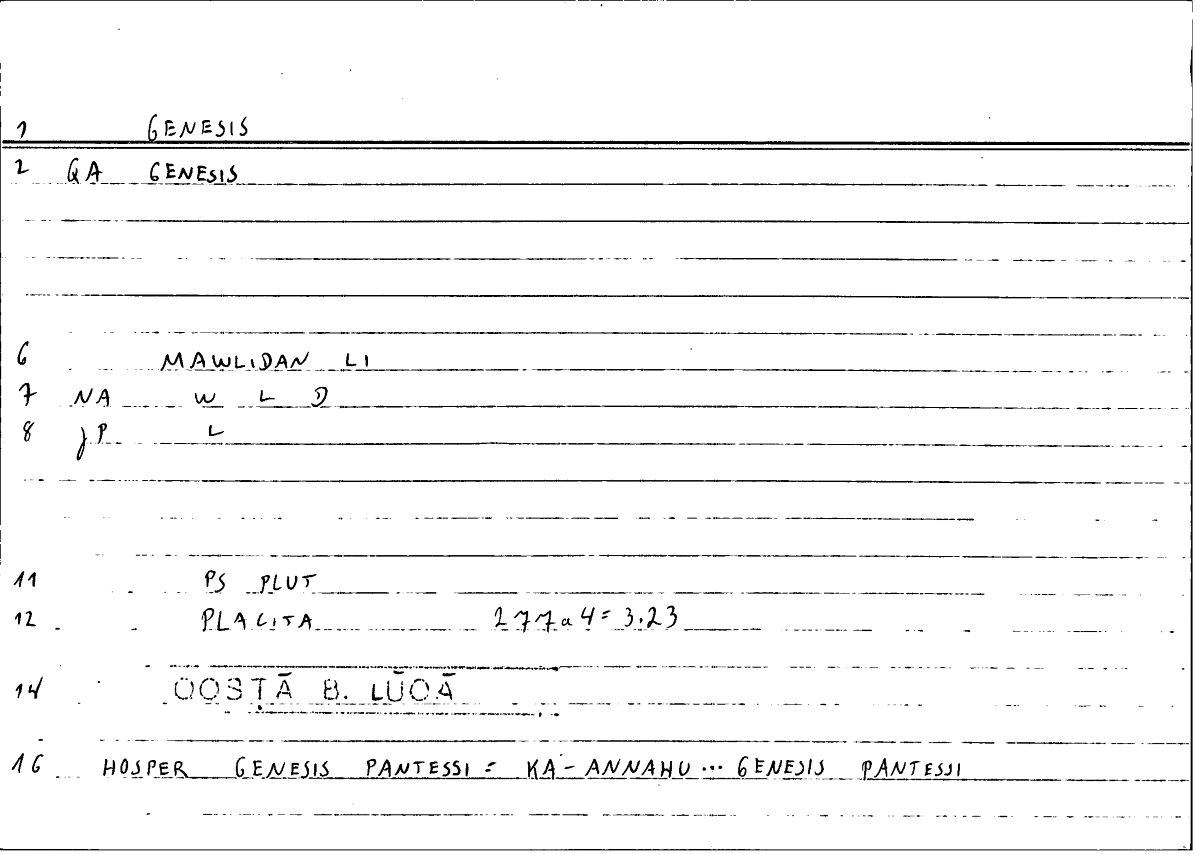 1 GENESIS
2 QA GENESIS
6 MAWLIDAN LI
7 NA W L D
8 JP L
11 PS PLUT
12 PLACITA 277a4=3.23
14 QOSṬĀ B. LŪQĀ
16 HOSPER GENESIS PANTESSI = KA-ANNAHU... GENESIS PANTESSI